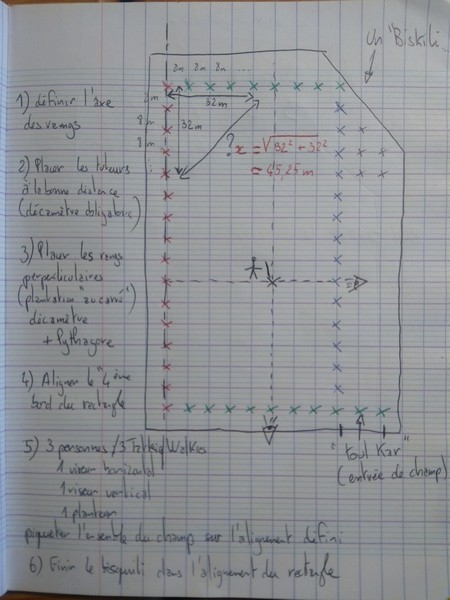 un "Biskili
8m 8m 8m ....
1) définir l'axe
des rangs
8m
8m
8m
32m
32m
?
x = √32² + 32²
= 45,25 m
2) Placer les tuteurs
à la bonne distance
(décamètre obligatoire)
3) Placer les rangs
perpendiculaires
(plantation "au carré")
décamètre
+ Pythagore
4) Aligner le "4ème
bord du rectangle
5) 3 personnes / 3 Talkie/Walkies
1 viseur horizontal
1 viseur vertical
1 planteur
"Toul Kar"
(entrée de champ)
piqueter l'ensemble du champ sur l'alignement défini
6) Finir le bisquili dans l'alignement du rectangle